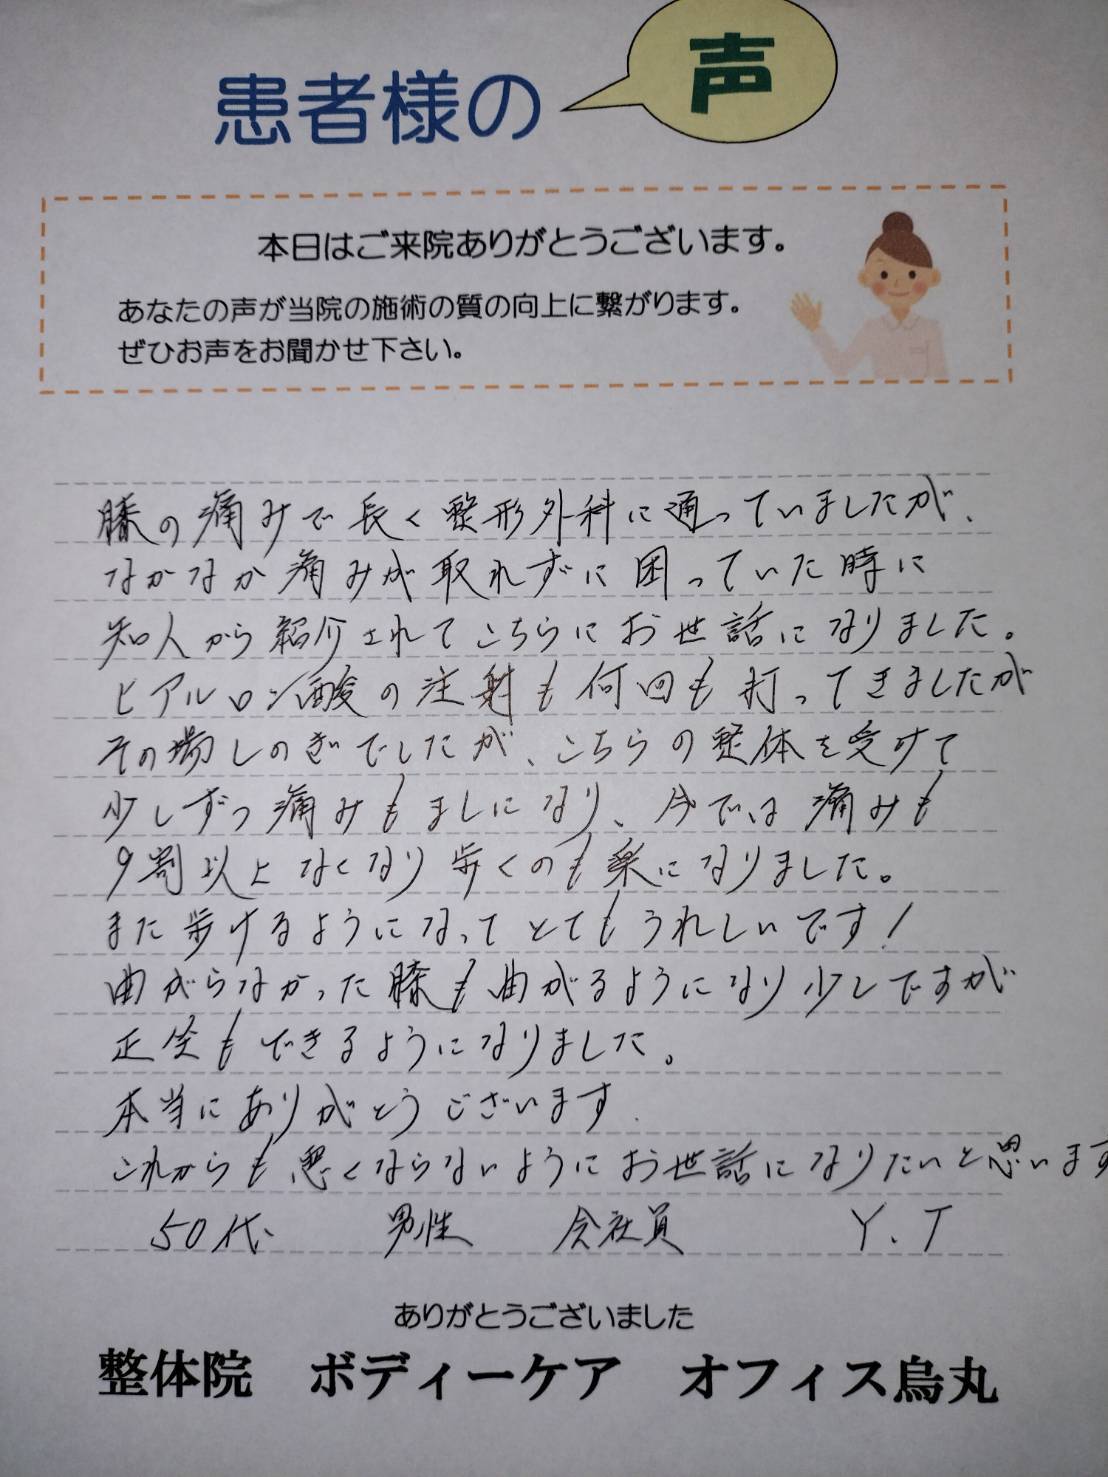 患者様の
声
本日はご来院ありがとうございます。
あなたの声が当院の施術の質の向上に繋がります。
ぜひお声をお聞かせ下さい。
膝の痛みで長く整形外科に通っていましたが、
なかなか痛みが取れずに困っていた時に
知人から紹介されてこちらにお世話になりました。
ヒアルロン酸の注射も何回も打ってきましたが
その場しのぎでしたが、こちらの整体を受けて
少しずつ痛みもましになり、今では痛みも
9割以上なくなり歩くのも楽になりました。
また歩けるようになってとてもうれしいです!
曲がらなかった膝も曲がるようになり少しですが
正坐もできるようになりました。
本当にありがとうございます.
これからも悪くならないようにお世話になりたいと思います
50代 男性 会社員 Y.T
ありがとうございました
整体院 ボディーケア オフィス烏丸